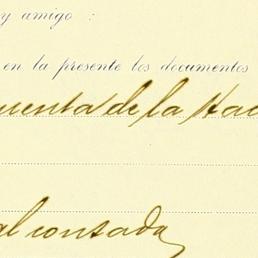 y amigo :
en la presente los documentos
uenta de la Hac
al contado,